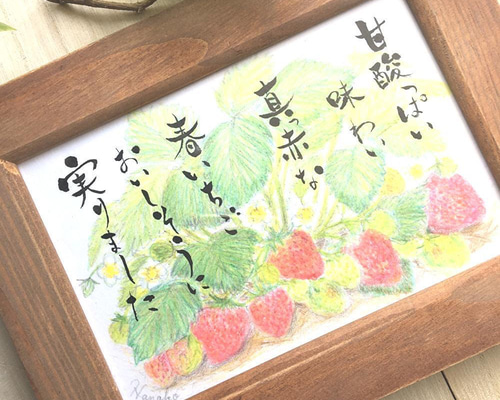 甘酸っぱい
味わい
真っ赤な
春いちご
おいしそうに
実りました
Nanako